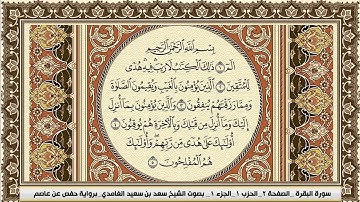 بِسْمِ اللَّهِ الرَّحْمَٰنِ الرَّحِيمِ
الٓمٓ ۝١ ذَٰلِكَ الْكِتَٰبُ لَا رَيْبَ فِيهِ هُدًى
لِّلْمُتَّقِينَ ۝٢ الَّذِينَ يُؤْمِنُونَ بِالْغَيْبِ وَيُقِيمُونَ الصَّلَوٰةَ
وَمِمَّا رَزَقْنَٰهُمْ يُنفِقُونَ ۝٣ وَالَّذِينَ يُؤْمِنُونَ بِمَآ أُنزِلَ
إِلَيْكَ وَمَآ أُنزِلَ مِن قَبْلِكَ وَبِالْءَاخِرَةِ هُمْ يُوقِنُونَ ۝٤
أُولَٰٓئِكَ عَلَىٰ هُدًى مِّن رَّبِّهِمْ وَأُولَٰٓئِكَ
هُمُ الْمُفْلِحُونَ ۝٥
سورة البقرة _الصفحة ٢_ الحزب ١_ الجزء ١_ بصوت الشيخ سعد بن سعيد الغامدي_ برواية حفص عن عاصم